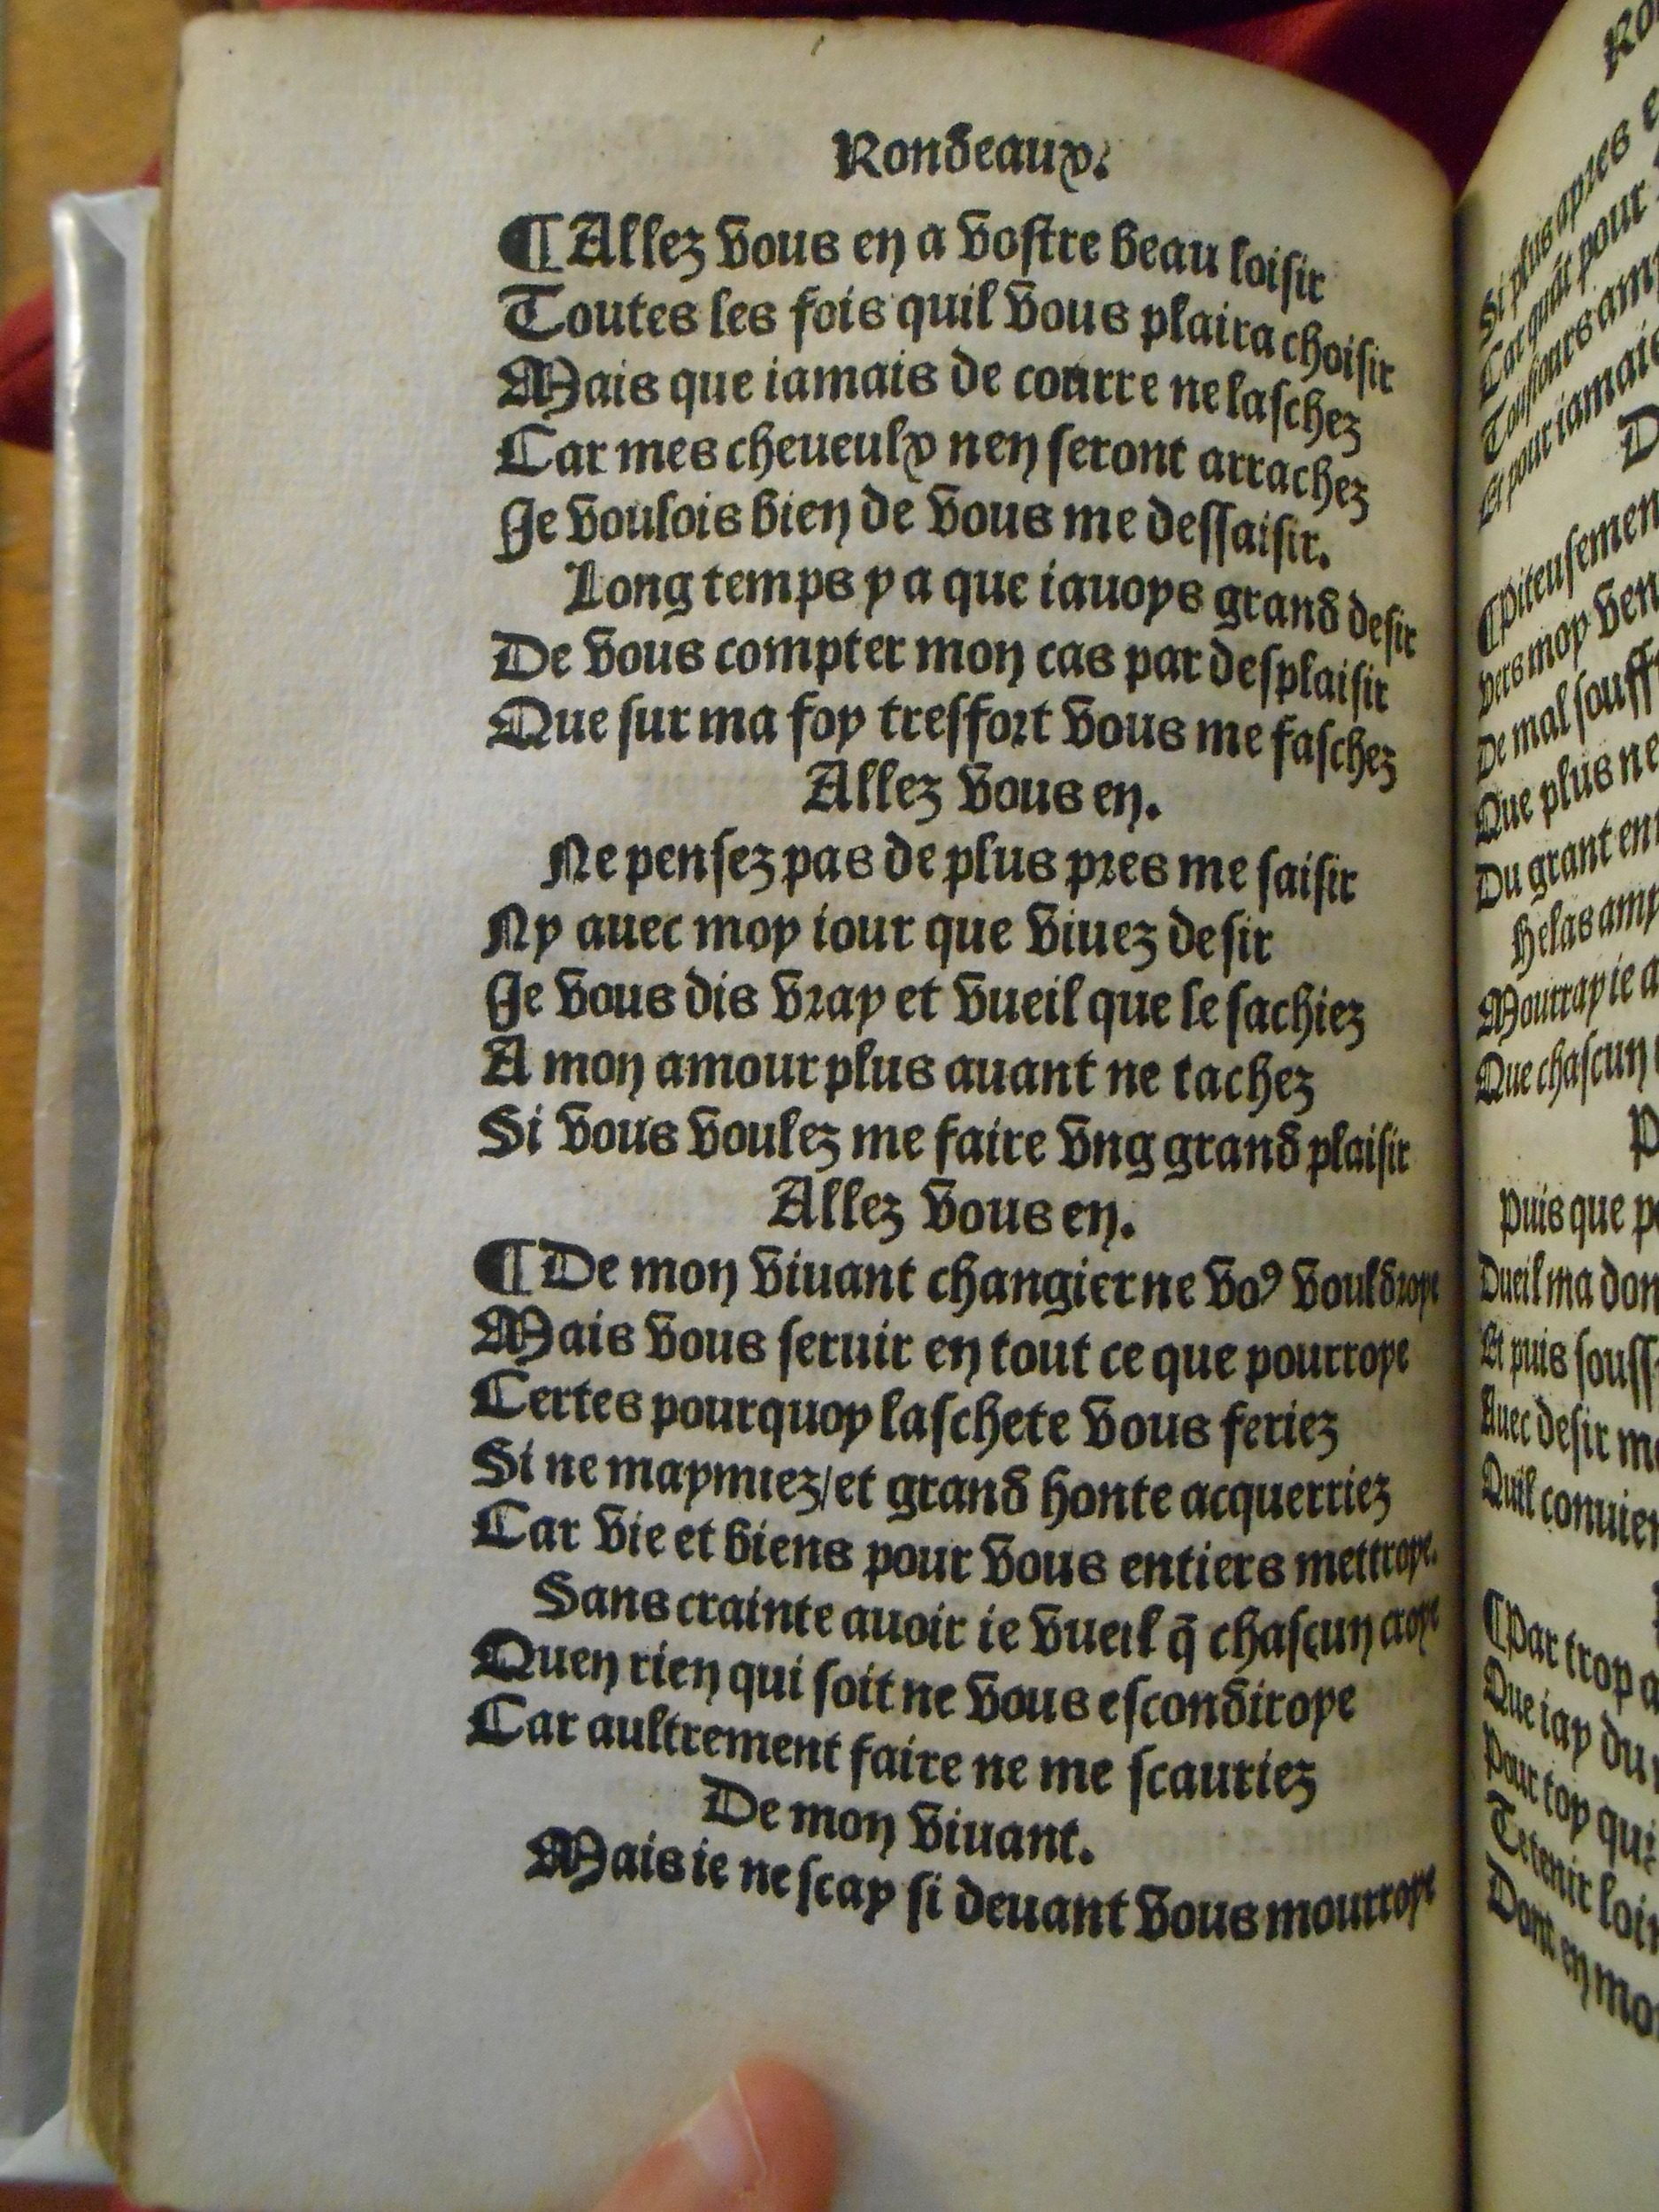 Rondeaux.
¶Allez vous en a vostre beau loisir
Toutes les fois quil vous plaira choisir
Mais que iamais de courre ne laschez
Car mes cheueulx nen seront arrachez
Je voulois bien de vous me dessaisir.
Long temps y a que iauoys grand desir
De vous compter mon cas par desplaisir
Que sur ma foy tresfort vous me faschez
Allez vous en.
Ne pensez pas de plus pres me saisir
Ny auec moy iour que viuez desir
Je vous dis vray et vueil que le sachiez
A mon amour plus auant ne tachez
Si vous voulez me faire vng grand plaisir
Allez vous en.
¶De mon viuant changier ne voꝰ vouldroye
Mais vous seruir en tout ce que pourroye
Certes pourquoy laschete vous feriez
Si ne maymiez/et grand honte acquerriez
Car vie et biens pour vous entiers mettroye.
Sans crainte auoir ie vueil q̄ chascun croye
Quen rien qui soit ne vous escondiroye
Car aultrement faire ne me scauriez
De mon viuant.
Mais ie ne scay si deuant vous mourroye
Si plus apres
Car quāt pour
Tousiours
Et pour iamais
¶Piteusement
Vers moy
De mal
Que plus ne
Du grant
Helas
Mourray ie
Que chascun
Puis que
Dueil ma
Et puis
Auec desir
Quil
¶Par trop
Que iay
Pour toy
Tenir
Dont en